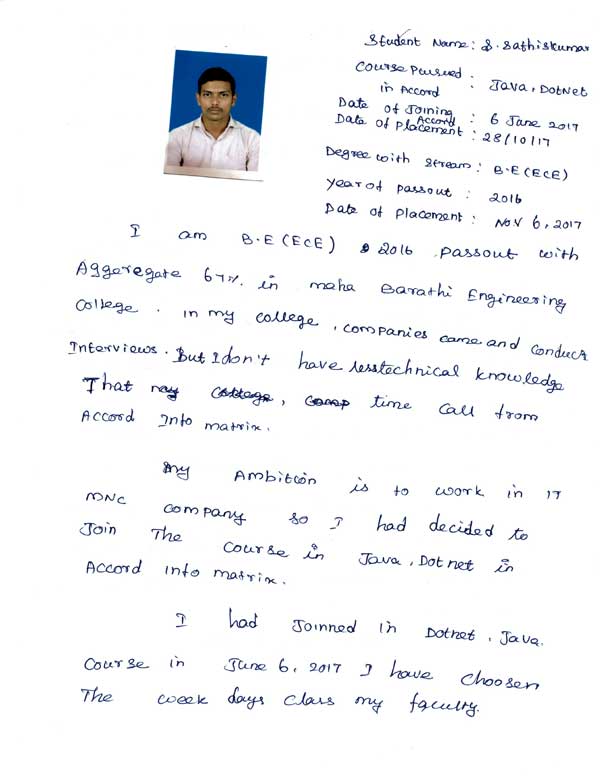 Student Name: S. Sathiskumar
Course Pursued
in Accord : Java, DotNet
Date of Joining
Accord : 6 June 2017
Date of Placement : 28/10/17
Degree with Stream : B.E (ECE)
Year of Passout : 2016
Date of Placement : Nov 6, 2017
I am B.E (ECE) 2016 passout with
Aggeregate 67%. in maha Barathi Engineering
College. in my college, companies came and conduct
Interviews. But I don't have lesstechnical knowledge
That time call from
Accord Info matrix.
My Ambition is to work in IT
MNC company so I had decided to
Join The Course in Java, Dotnet in
Accord info matrix.
I had Joinned in Dotnet, Java.
Course in June 6, 2017 I have choosen
The week days class my faculty.